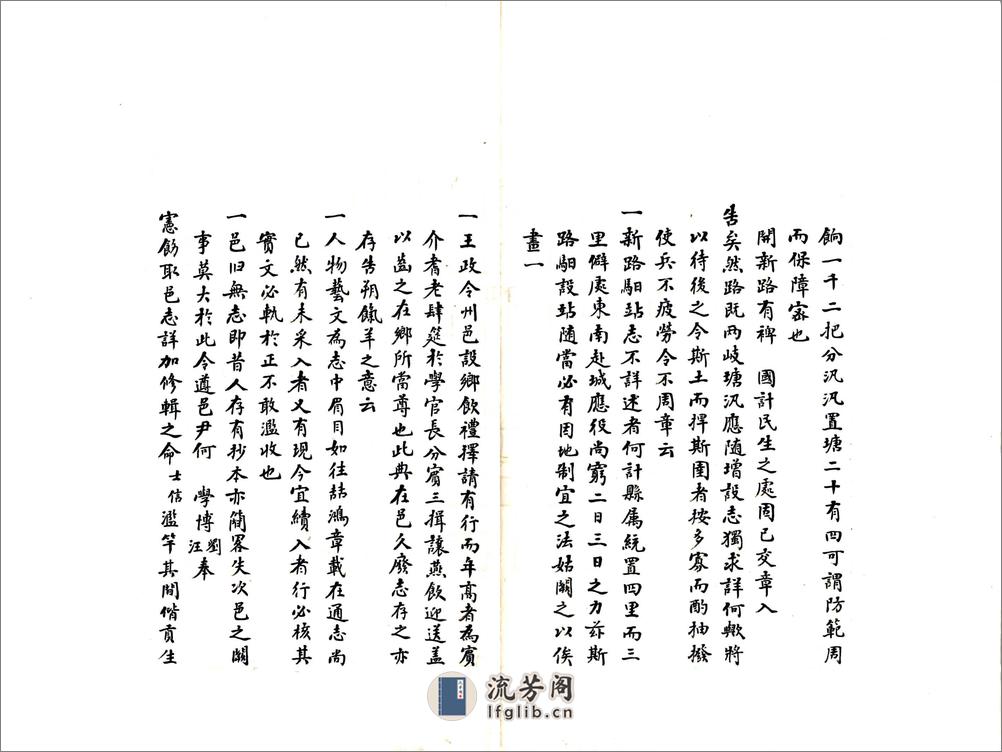 餉一千二把分汛汛置塘二十有四可謂防範周
而保障密也
開新路有裨　國計民生之處周已交章入
告矣然路既兩岐塘汛應隨增設志獨求詳何歟將
以待後之令斯土而捍斯圉者按多寡而酌抽撥
使兵不疲勞令不周章云
一新路馹站志不詳述者何計縣属統置四里而三
里僻處東南赴城應役尚窮二日三日之力茲斯
路馹設站随當必有因地制宜之法姑闕之以俟
畫一
一王政令州邑設鄉飲禮擇請有行而年高者為賓
介耆老肆筵於學官長分賓三揖讓燕飲迎送蓋
以齒之在鄉所當尊也此典在邑久廢志存之亦
存告朔餼羊之意云
一人物藝文為志中眉目如往喆鴻章載在通志尚
已然有未采入者又有現今宜續入者行必核其
實文必軌於正不敢濫收也
一邑旧無志即昔人存有抄本亦簡畧失次邑之闕
事莫大於此今遵邑尹何　學博劉汪奉
憲飭取邑志詳加修輯之命士信濫竽其間偕貢生
流芳阁
lfglib.cn